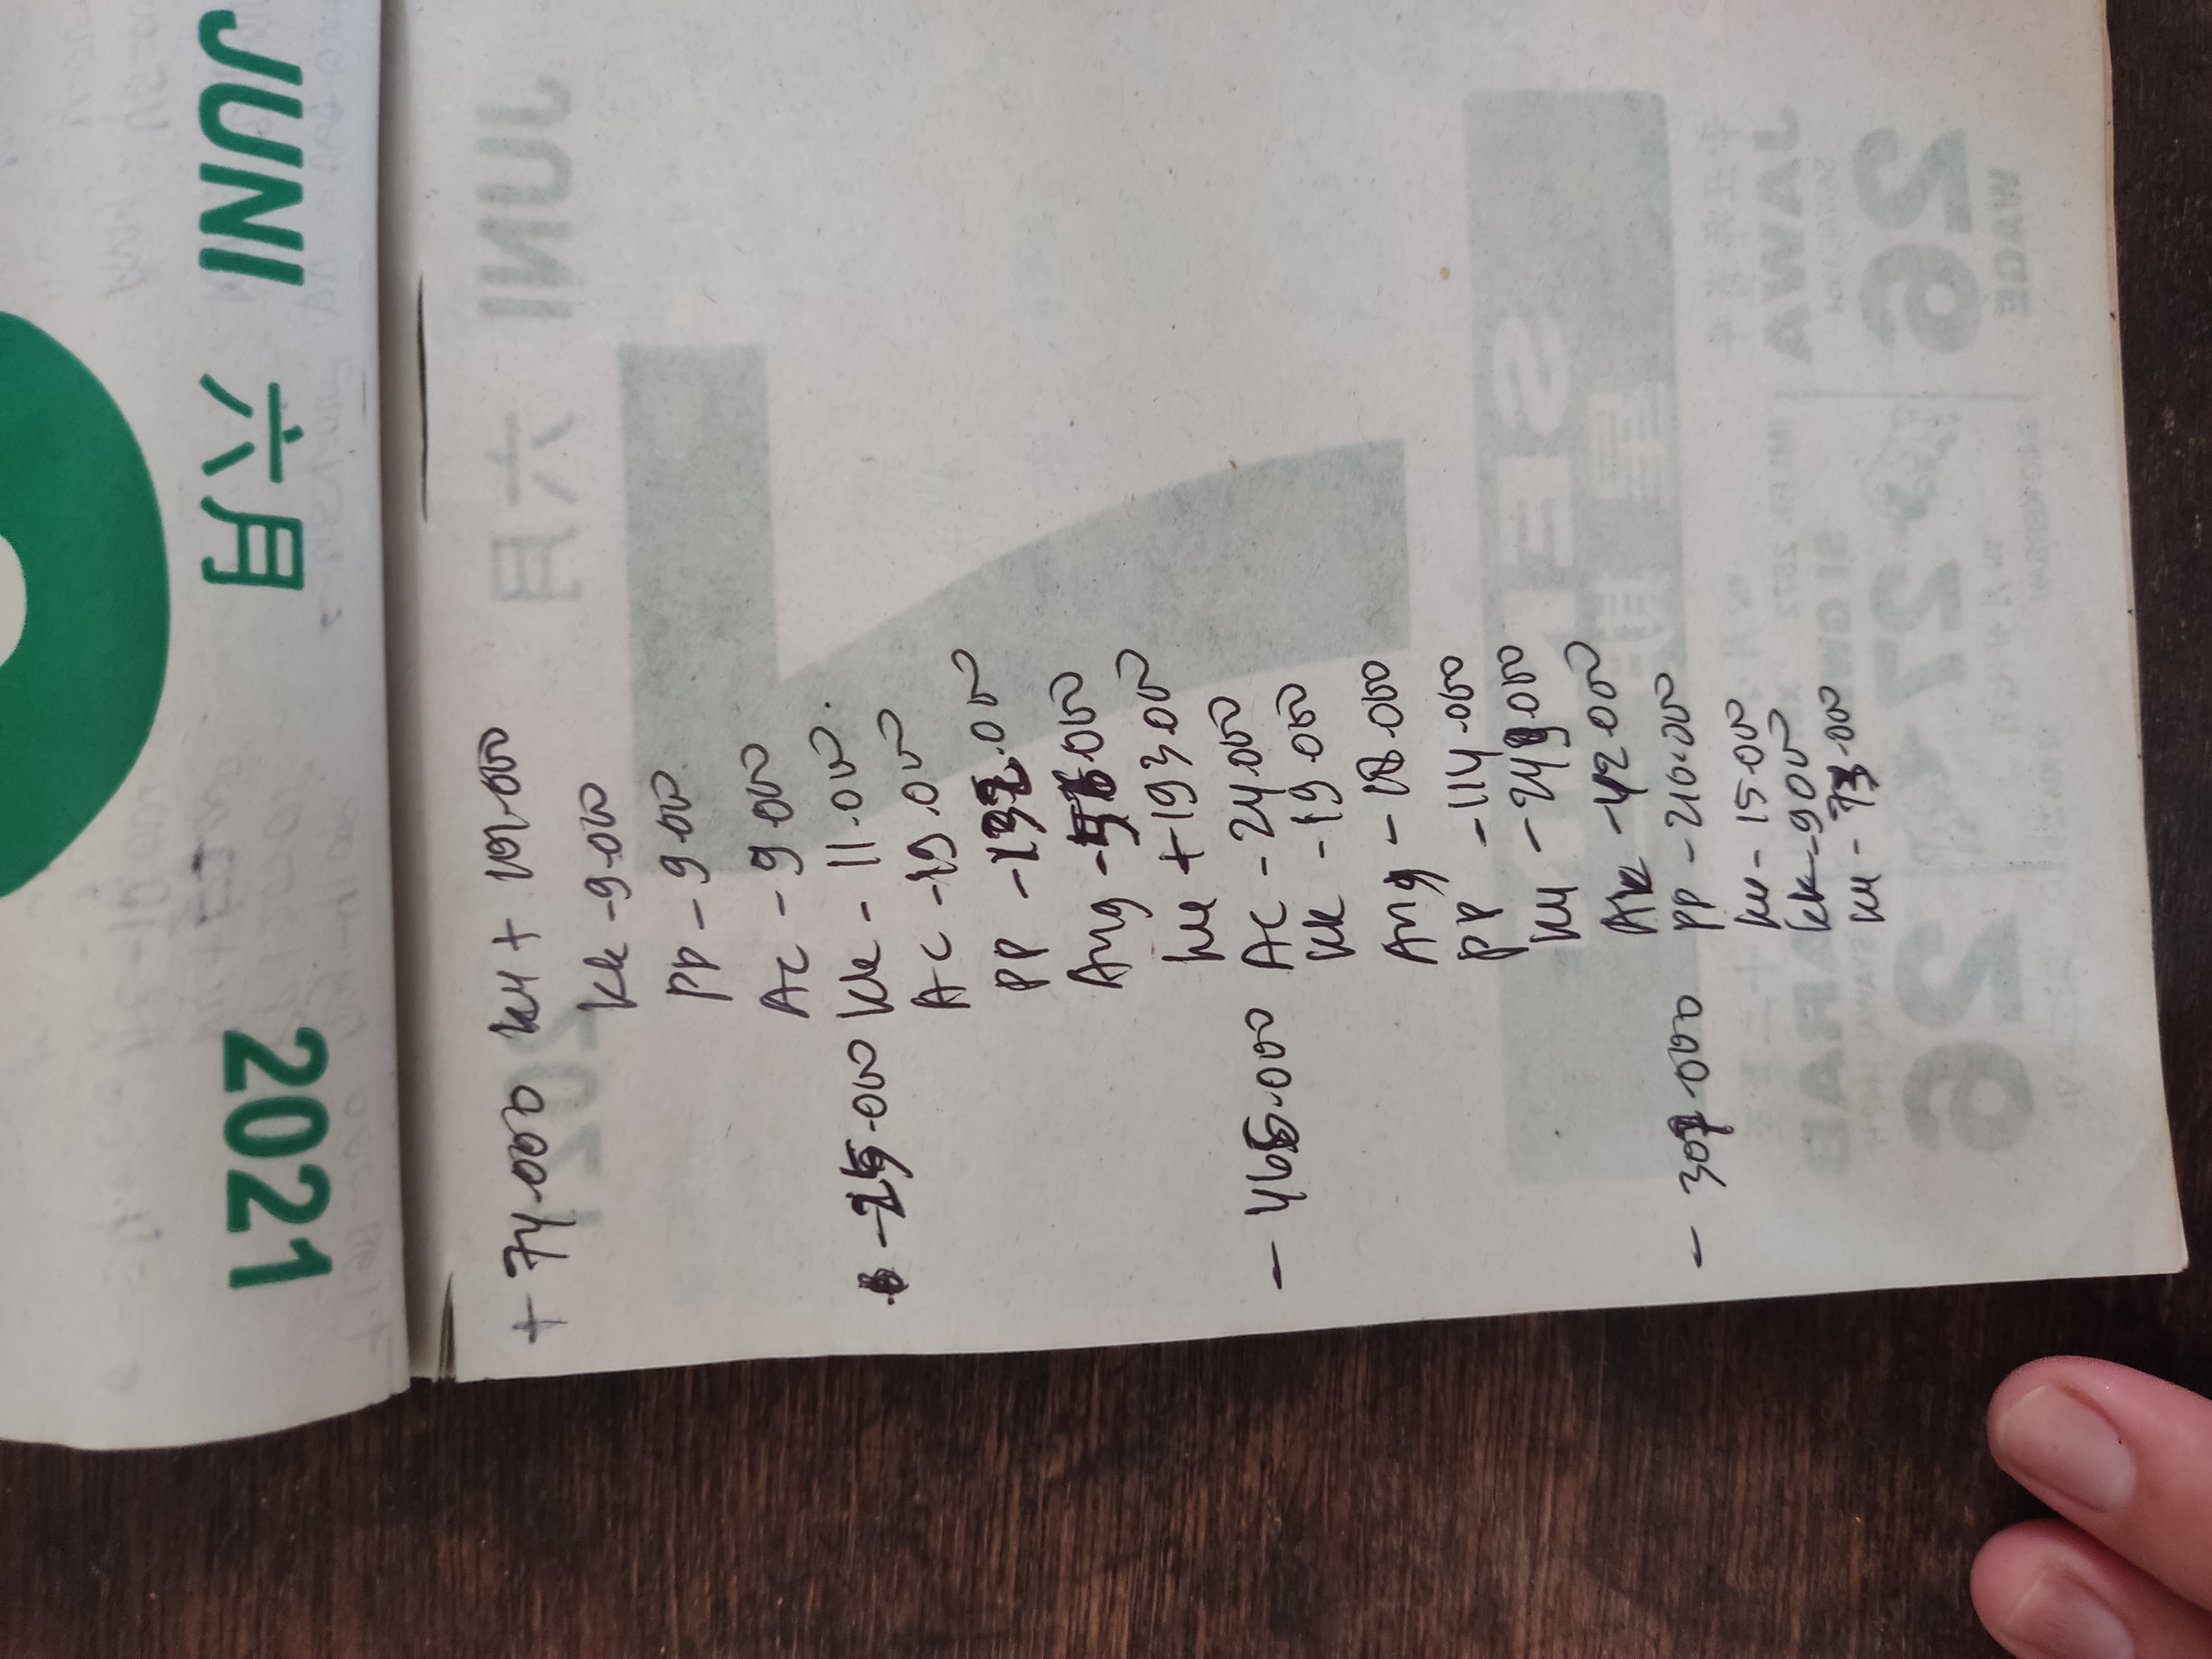 2021 六月 JUNI
+ 74.000 ku + 101.000
kk - 9.000
PP - 9.000
Ac - 9.000
- 25.000 kk - 11.000.
AC - 19.000
PP - 132.000
Ang - 56.000
ku + 193.000
- 465.000 AC - 24.000
kk - 19.000
Ang - 18.000
PP - 114.000
ku - 249.000
Ak - 42.000
- 307.000 PP - 210.000
ku - 15.000
kk - 9000
ku - 73.000